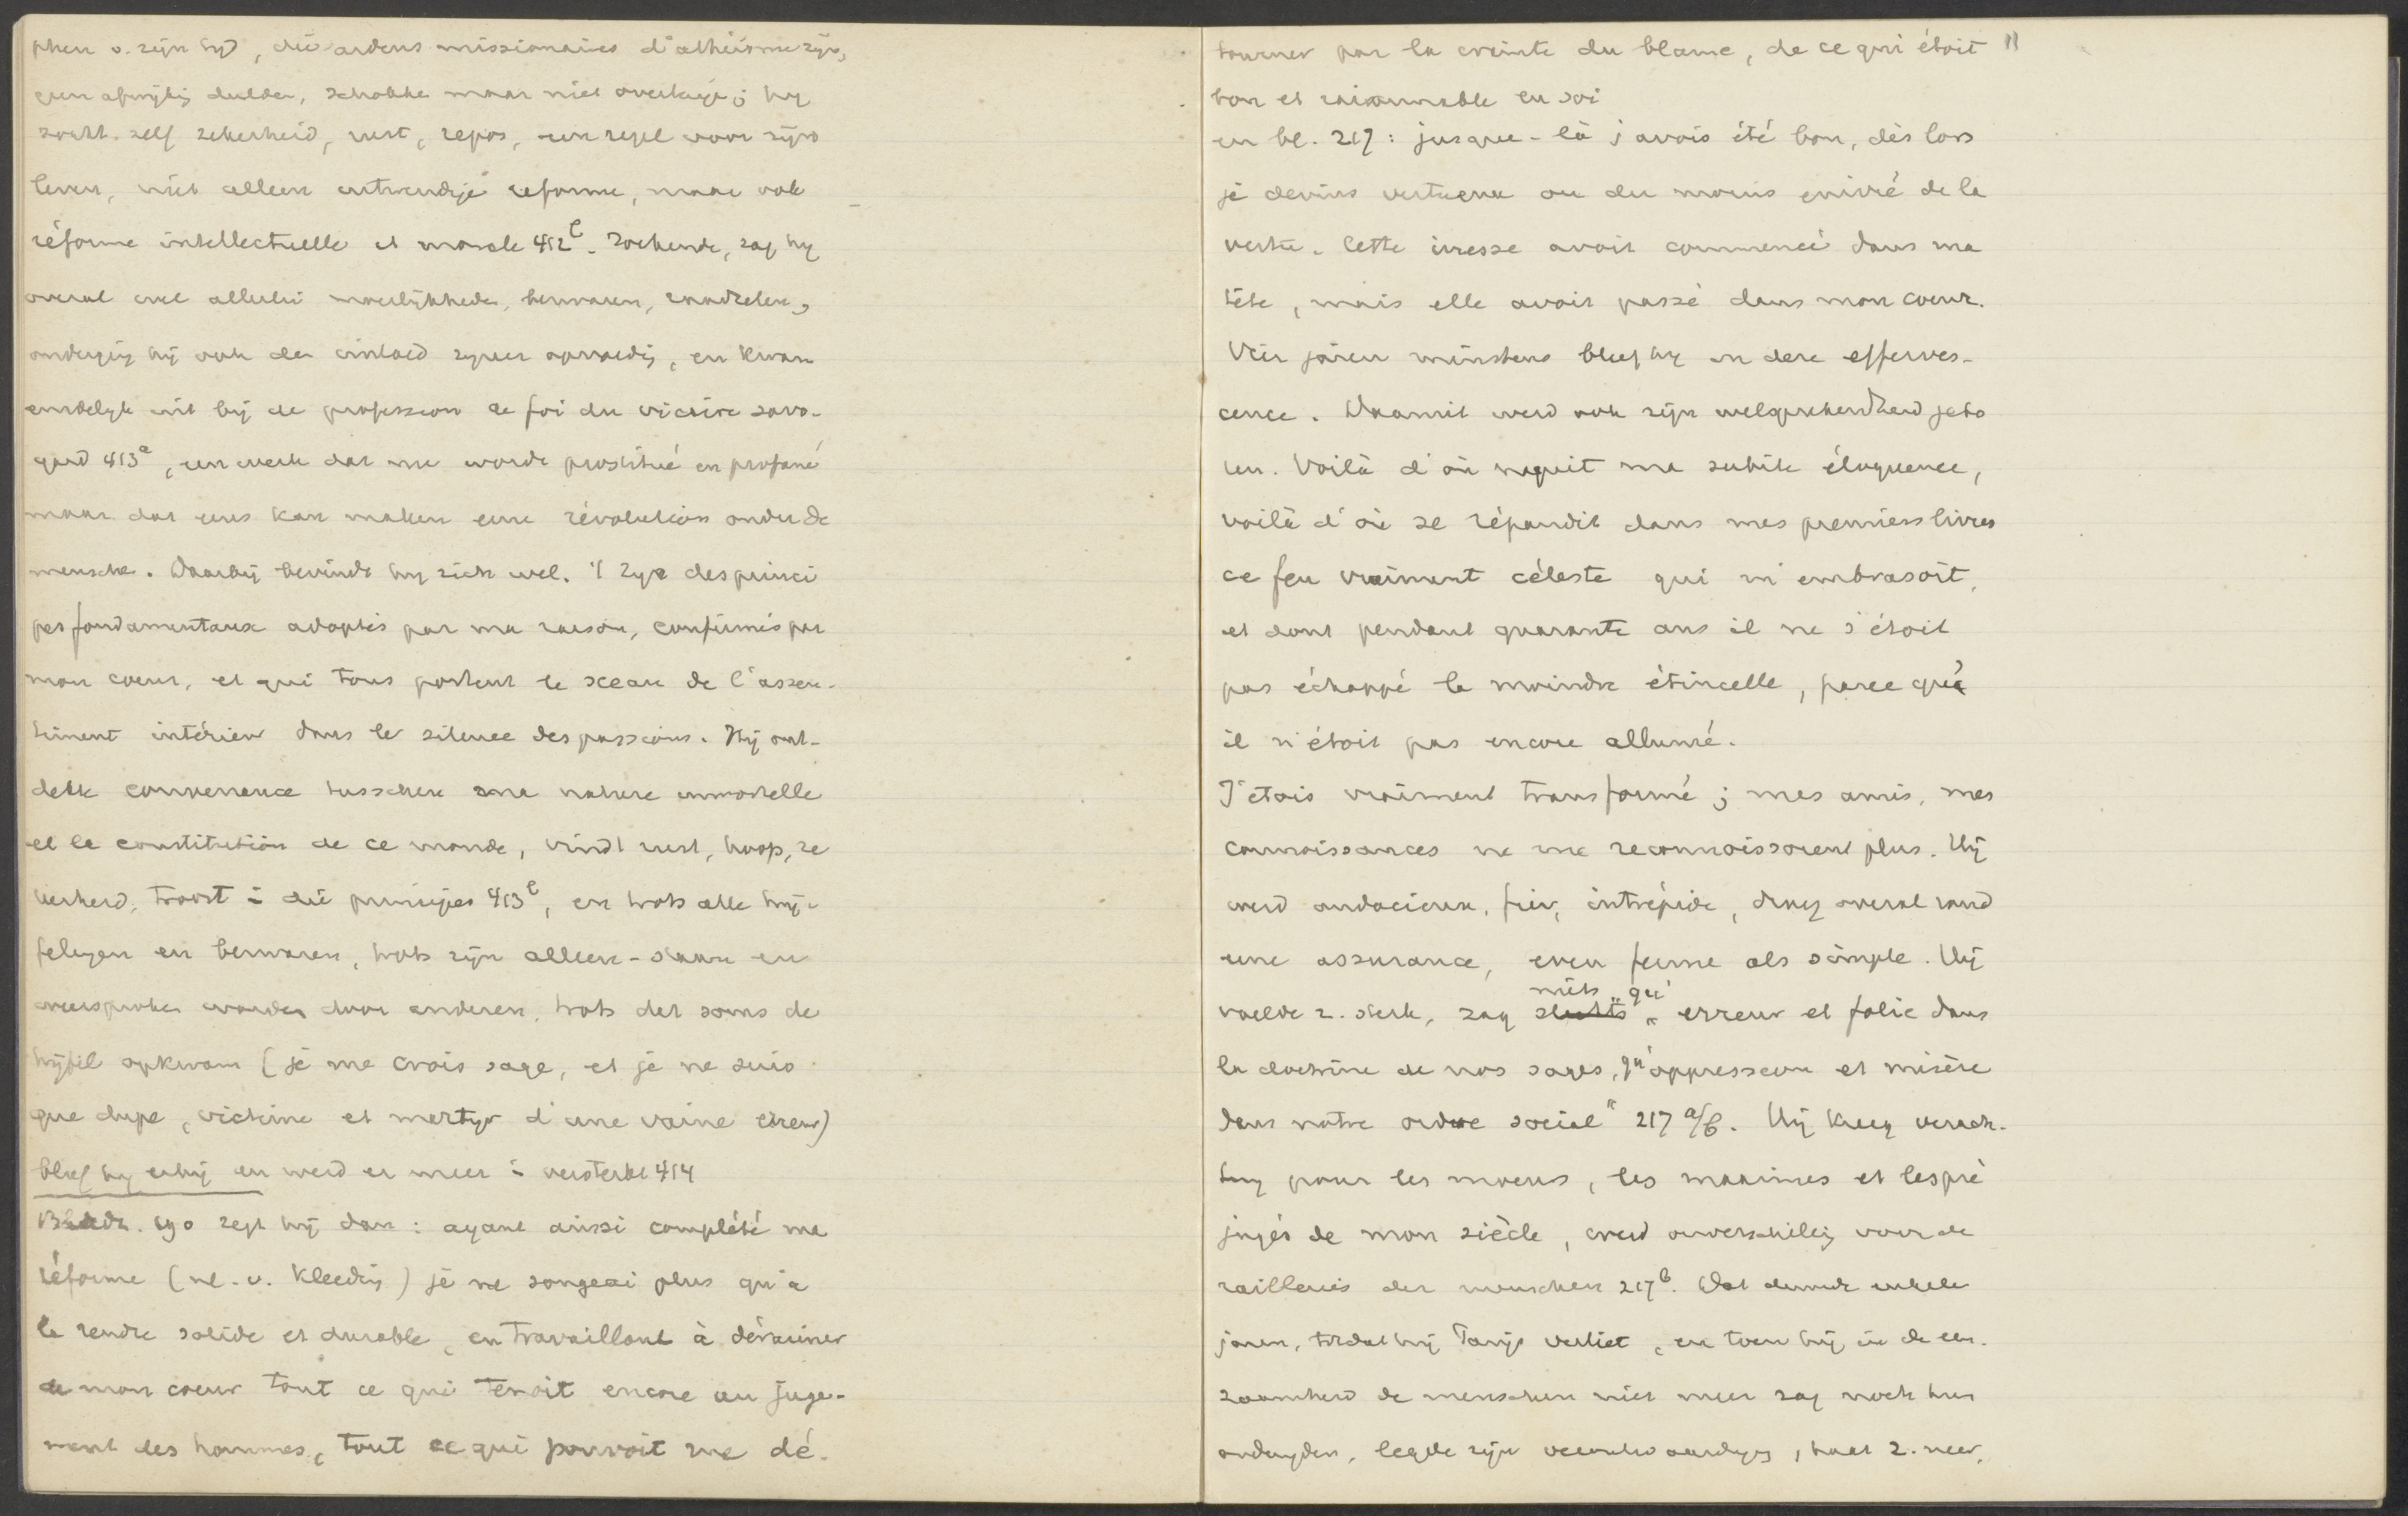 phen v. zijn tijd, die ardens missionaires d'athéisme zijn,
geen afwijking dulden, schokken maar niet overtuigen; hij
zocht zelf zekerheid, rust, repos, een regel voor zijn
leven, niet alleen uitwendige reforme, maar ook
réforme intellectuelle et morale 412b. Zoekende, zag hij
overal wel allerlei moeilijkheden, bezwaren, raadselen,
onderging hij ook den invloed zijner opvoeding, en kwam
eindelijk uit bij de profession de foi du vicaire savo-
yard 413a, een werk dat nu worde prostitué en profané
maar dat eens kan maken eene révolution onder de
menschen. Daarbij bevindt hij zich wel. 't Zijn des princi
pes fondamentaux adoptés par ma raison, confirmés par
mon coeur, et qui tous portent le sceau de l'assen-
timent intérieur dans le silence des passions. Hij ont-
dekte convenance tusschen ma nature immortelle
et la constitution de ce monde, vindt rust, hoop, ze
kerheid, troost in die principes 413b, en trots alle twij-
felingen en bezwaren, trots zijn alleen-staan en
weersproken worden door anderen, trots dat soms de
twijfel opkwam (je me crois sage, et je ne suis
que dupe, victime et martyr d'une vaine erreur)
bleef hij erbij en werd er meer in versterkt 414
Bladz. 190 zegt hij dan: ayant ainsi complété ma
réforme (nl. v. kleeding) je ne songeai plus qu'à
la rendre solide et durable, en travaillant à déraciner
de mon coeur tout ce qui tenoit encore au juge-
ment des hommes, tout ce qui pouvoit me dé-
tourner par la crainte du blame, de ce qui étoit "
bon et raisonnable en soi
en bl. 217: jusque-là j'avois été bon, dès lors
je devins vertueux ou du moins enivré de la
vertu. Cette ivresse avoit commencé dans ma
tête, mais elle avoit passé dans mon coeur.
Vier jaren minstens bleef hij in deze efferves-
cence. Daaruit werd ook zijn welsprekendheid gebo
ren. Voilà d'où naquit ma subite éloquence,
voilà d'où se répandit dans mes premiers livres
ce feu vraiment céleste qui m'embrasoit,
et dont pendant quarante ans il ne s'étoit
pas échappé la moindre étincelle, parce qu'
il n'étoit pas encore allumé.
J'etois vraiment transformé; mes amis, mes
connoissances ne me reconnoissoient plus. Hij
werd audacieux, fier, intrépide, droeg overal rond
une assurance, even ferme als simple. Hij
niets "qu'
voelde z. sterk, zag slechts " erreur et folie dans
la doctrine de nos sages, qu'oppression et misère
dans notre ordre social" 217 a/b. Hij kreeg verach-
ting pour les moeurs, les maximes et les pré
jugés de mon siècle, werd onverschillig voor de
railleries der menschen 217b. Dat duurde enkele
jaren, totdat hij Parijs verliet, en toen hij in de een-
zaamheid de menschen niet meer zag noch hun
legde zijn , haat z. neer,